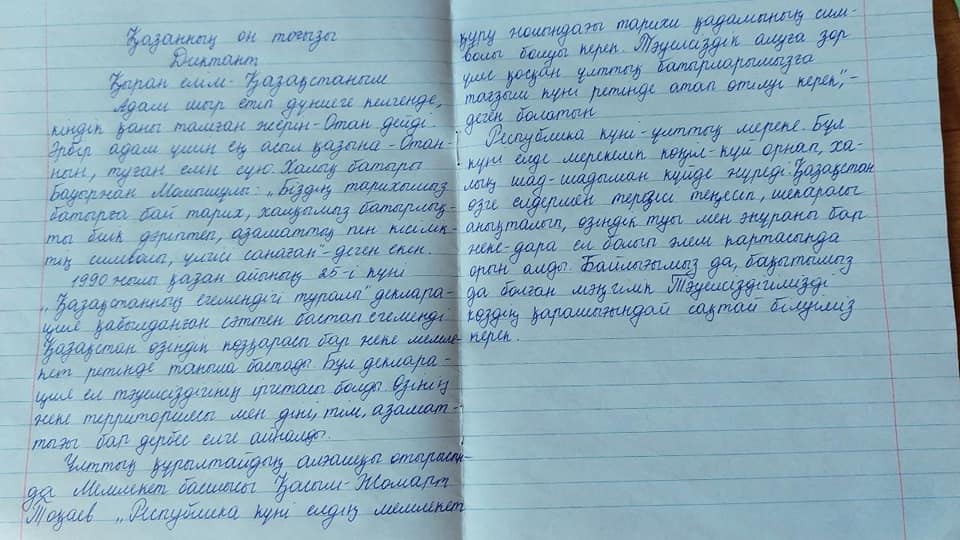 Қазанның он тоғызы
Диктант
Қыран елім-Қазақстаным
Адам шыр етіп дүниеге келгенде,
кіндік қаны тамған жерін-Отан дейді.
Әрбір адам үшін ең асыл қазына-Отан-
ның, туған елін сүю. Халық батыры
Бауыржан Момышұлы: „Біздің тарихымыз
батырға бай тарих, халқымыз батырлық-
ты биік дәріптеп, азаматтық пен кісілік-
тің символы, үлгісі санаған"-деген екен.
1990 жылы қазан айының 25-і күні
„Қазақстанның егемендігі туралы" деклара-
ция қабылданған сәттен бастап егеменді
Қазақстан өзіндік көзқарасы бар жеке мемле-
кет ретінде таныла бастады. Бұл деклара-
ция ел тәуелсіздігінің іргетасы болды өзінің
жеке территориясы мен діні, тілі, азамат-
тығы бар дербес елге айналды.
Ұлттық құрылтайдың алғашқы отырысын-
да Мемлекет басшысы Қасым-Жомарт
Тоқаев „Республика күні елдің мемлекет
құру жолындағы тарихи қадамының сим-
волы болуы керек. Тәуелсіздік алуға зор
үлес қосқан ұлттық батырларымызға
тағзым күні ретінде атап өтілуі керек",-
деген болатын
Республика күні-ұлттық мереке. Бұл
күні елде мерекелік көңіл-күй орнап, ха-
лық шад-шадыман күйде жүреді. Қазақстан
өзге елдермен терезесі теңесіп, шекарасы
анықталып, өзіндік туы мен әнұраны бар
жеке-дара ел болып әлем картасында
орын алды. Байлығымыз да, бақытымыз
да болған мәңгілік Тәуелсіздігімізді
көздің қарашығындай сақтай білуіміз
керек.